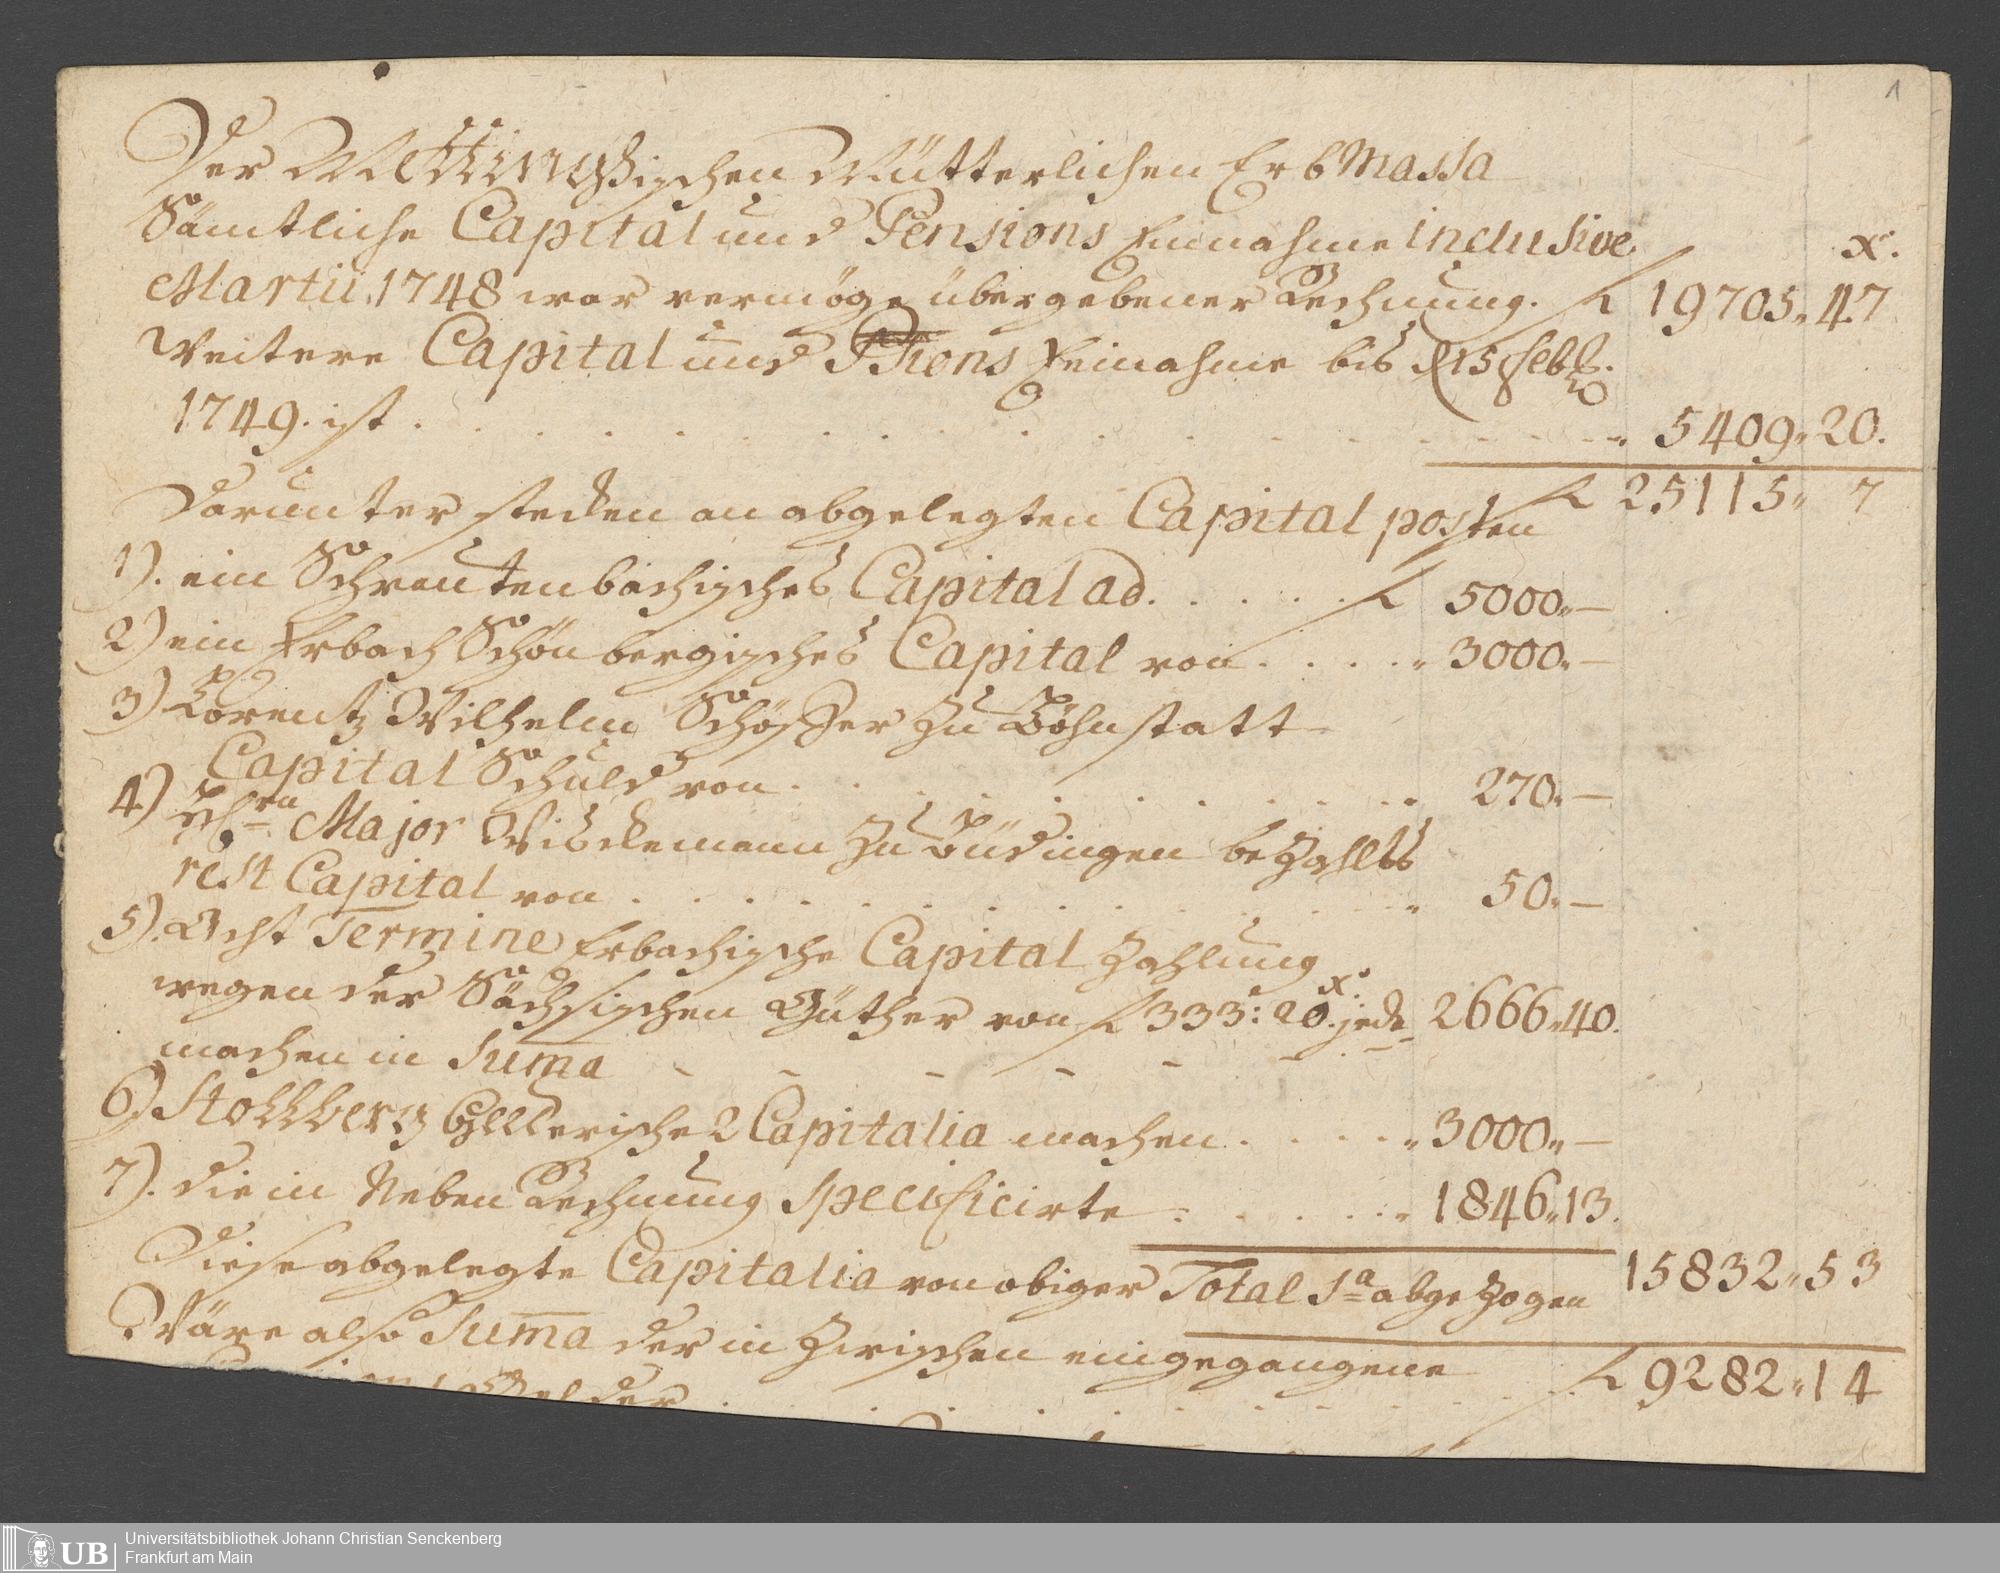 1
Der Mettingischen Mütterlichen Erb Massa
Sämtliche Capital und Pensions Einnahme inclusive
Martii. 1748 war vermöge übergebener Rechnung. f 19705„ 47
xr.
Weitere Capital und Pensions Einnahme bis d. 15 Febr.
1749. ist . . . . . . . . . . „ 5409„ 20.
f 25115„ 7
Darunter stecken an abgelegten Capital posten
1). ein Schrautenbachisches Capital ad. . . . . . f 5000„ —
2) ein Erbach Schönbergisches Capital von . . . . „ 3000„ —
3) Lorentz Wilhelm Schösser zu Lohnstatt
Capital Schuld von . . . . . . . . „ 270„ —
4) Hrn Major Wisckemann zu Büdingen bezahlts
rest Capital von . . . . . . . . „ 50„ —
5). Acht Termine Erbachische Capital Zahlung
wegen der Sächsischen Güther von f 333: 20 xr. jede 2666„ 40.
machen in Suma - - - - - -
6) Stollberg 2 Capitalia machen . . . . „ 3000„ —
7). die in Neben Rechnung specificirte . . . . „ 1846„ 13.
Diese abgelegte Capitalia von obiger Total Sa abgezogen 15832„ 53
Wäre also Suma der in zwischen eingegangene
f 9282„ 14
Gelder
UB
Universitätsbibliothek Johann Christian Senckenberg
Frankfurt am Main